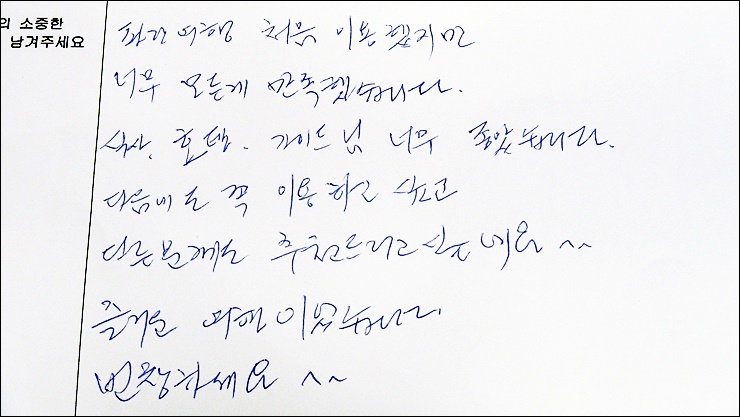 의 소중한
남겨주세요
여행 처음 이용했지만
너무 모든게 만족했습니다.
식사, 호텔, 가이드님 너무 좋았습니다.
다음에도 꼭 이용하고 싶고
다른분께도 추천드리고 싶네요 ^^
즐거운 여행이었습니다.
번창하세요 ^^